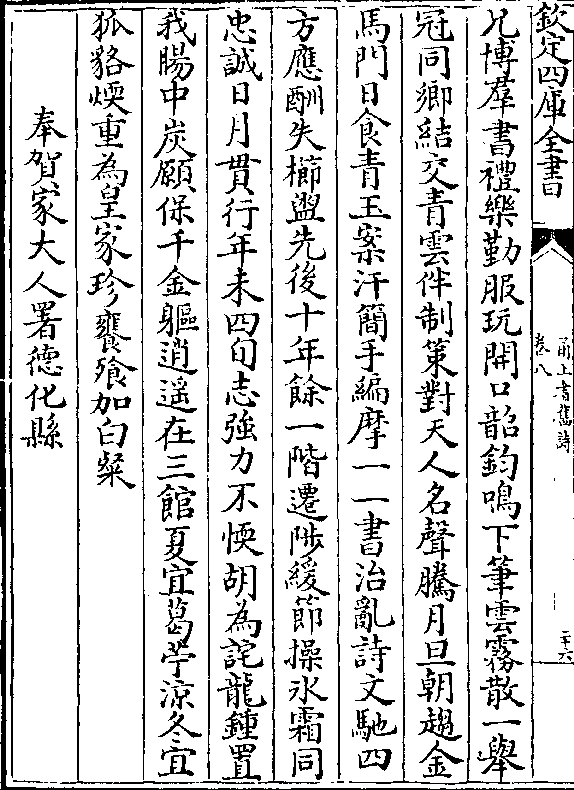 欽定四庫全書
甬上耆舊詩
卷八
二十六
兄博羣書禮樂勤服玩開口韶鈞鳴下筆雲霧散一舉
冠同鄉結交青雲伴制策對天人名聲騰月旦朝趨金
馬門日食青玉案汗簡手編摩一一書治亂詩文馳四
方應酬失櫛盥先後十年餘一階遷陟緩節操氷霜同
忠誠日月貫行年未四旬志強力不愞胡為詫龍鍾置
我腸中炭願保千金軀逍遥在三館夏宜葛苧涼冬宜
狐貉煗重為皇家珍饔飱加白粲
奉賀家大人署德化縣